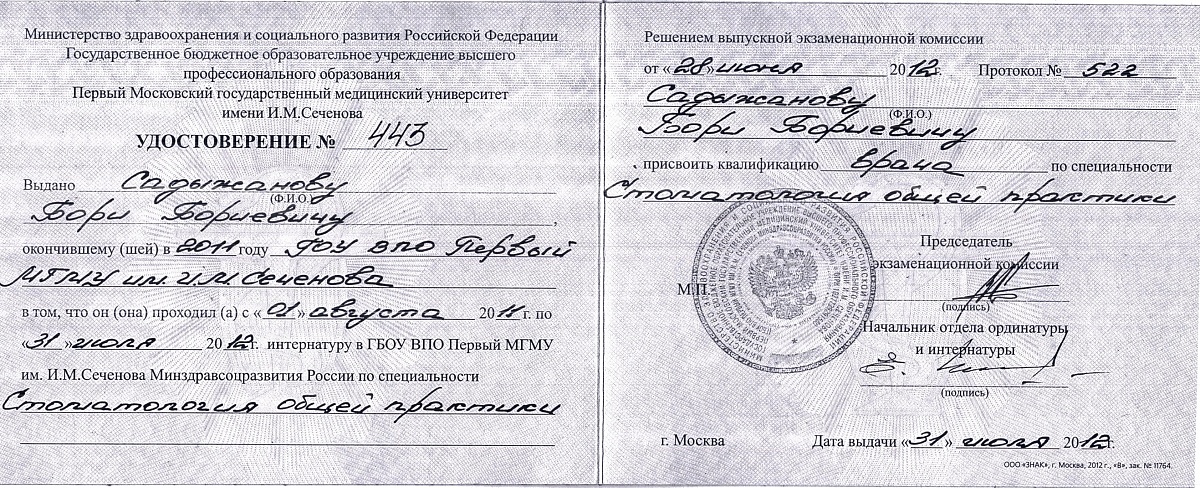 Министерство здравоохранения и социального развития Российской Федерации
Государственное бюджетное образовательное учреждение высшего
профессионального образования
Первый Московский государственный медицинский университет
имени И.М.Сеченова
УДОСТОВЕРЕНИЕ № 443
Выдано Садыжанову
(Ф.И.О.)
Бори Бориевичу,
окончившему (шей) в 2011 году ГОУ ВПО Первый
МГМУ им. И.М. Сеченова
в том, что он (она) проходил (а) с «01» августа 2011 г. по
«31» июля 2012 г. интернатуру в ГБОУ ВПО Первый МГМУ
им. И.М.Сеченова Минздравсоцразвития России по специальности
Стоматология общей практики
Решением выпускной экзаменационной комиссии
от «28» июня 2012 г. Протокол № 522
Садыжанову
(Ф.И.О.)
Бори Бориевичу
присвоить квалификацию врача по специальности
Стоматология общей практики
Председатель
экзаменационной комиссии
М.П.
(подпись)
Начальник отдела ординатуры
и интернатуры
(подпись)
г. Москва Дата выдачи «31» июля 2012 г.
ООО «ЗНАК», г. Москва, 2012 г., «В», зак. № 11764.